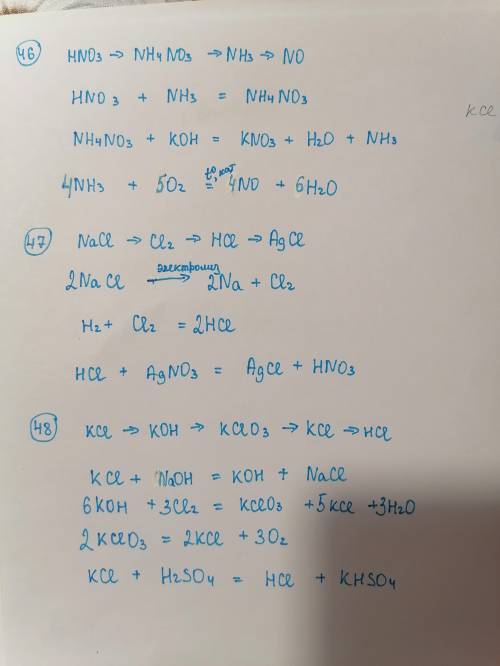 46 HNO3 → NH4NO3 → NH3 → NO
HNO3 + NH3 = NH4NO3
KCl
NH4NO3 + KOH = KNO3 + H2O + NH3
t°, кат
4NH3 + 5O2 = 4NO + 6H2O
47 NaCl → Cl2 → HCl → AgCl
электролиз
2NaCl → 2Na + Cl2
H2 + Cl2 = 2HCl
HCl + AgNO3 = AgCl + HNO3
48 KCl → KOH → KClO3 → KCl → HCl
KCl + NaOH = KOH + NaCl
6KOH + 3Cl2 = KClO3 + 5KCl + 3H2O
2KClO3 = 2KCl + 3O2
KCl + H2SO4 = HCl + KHSO4